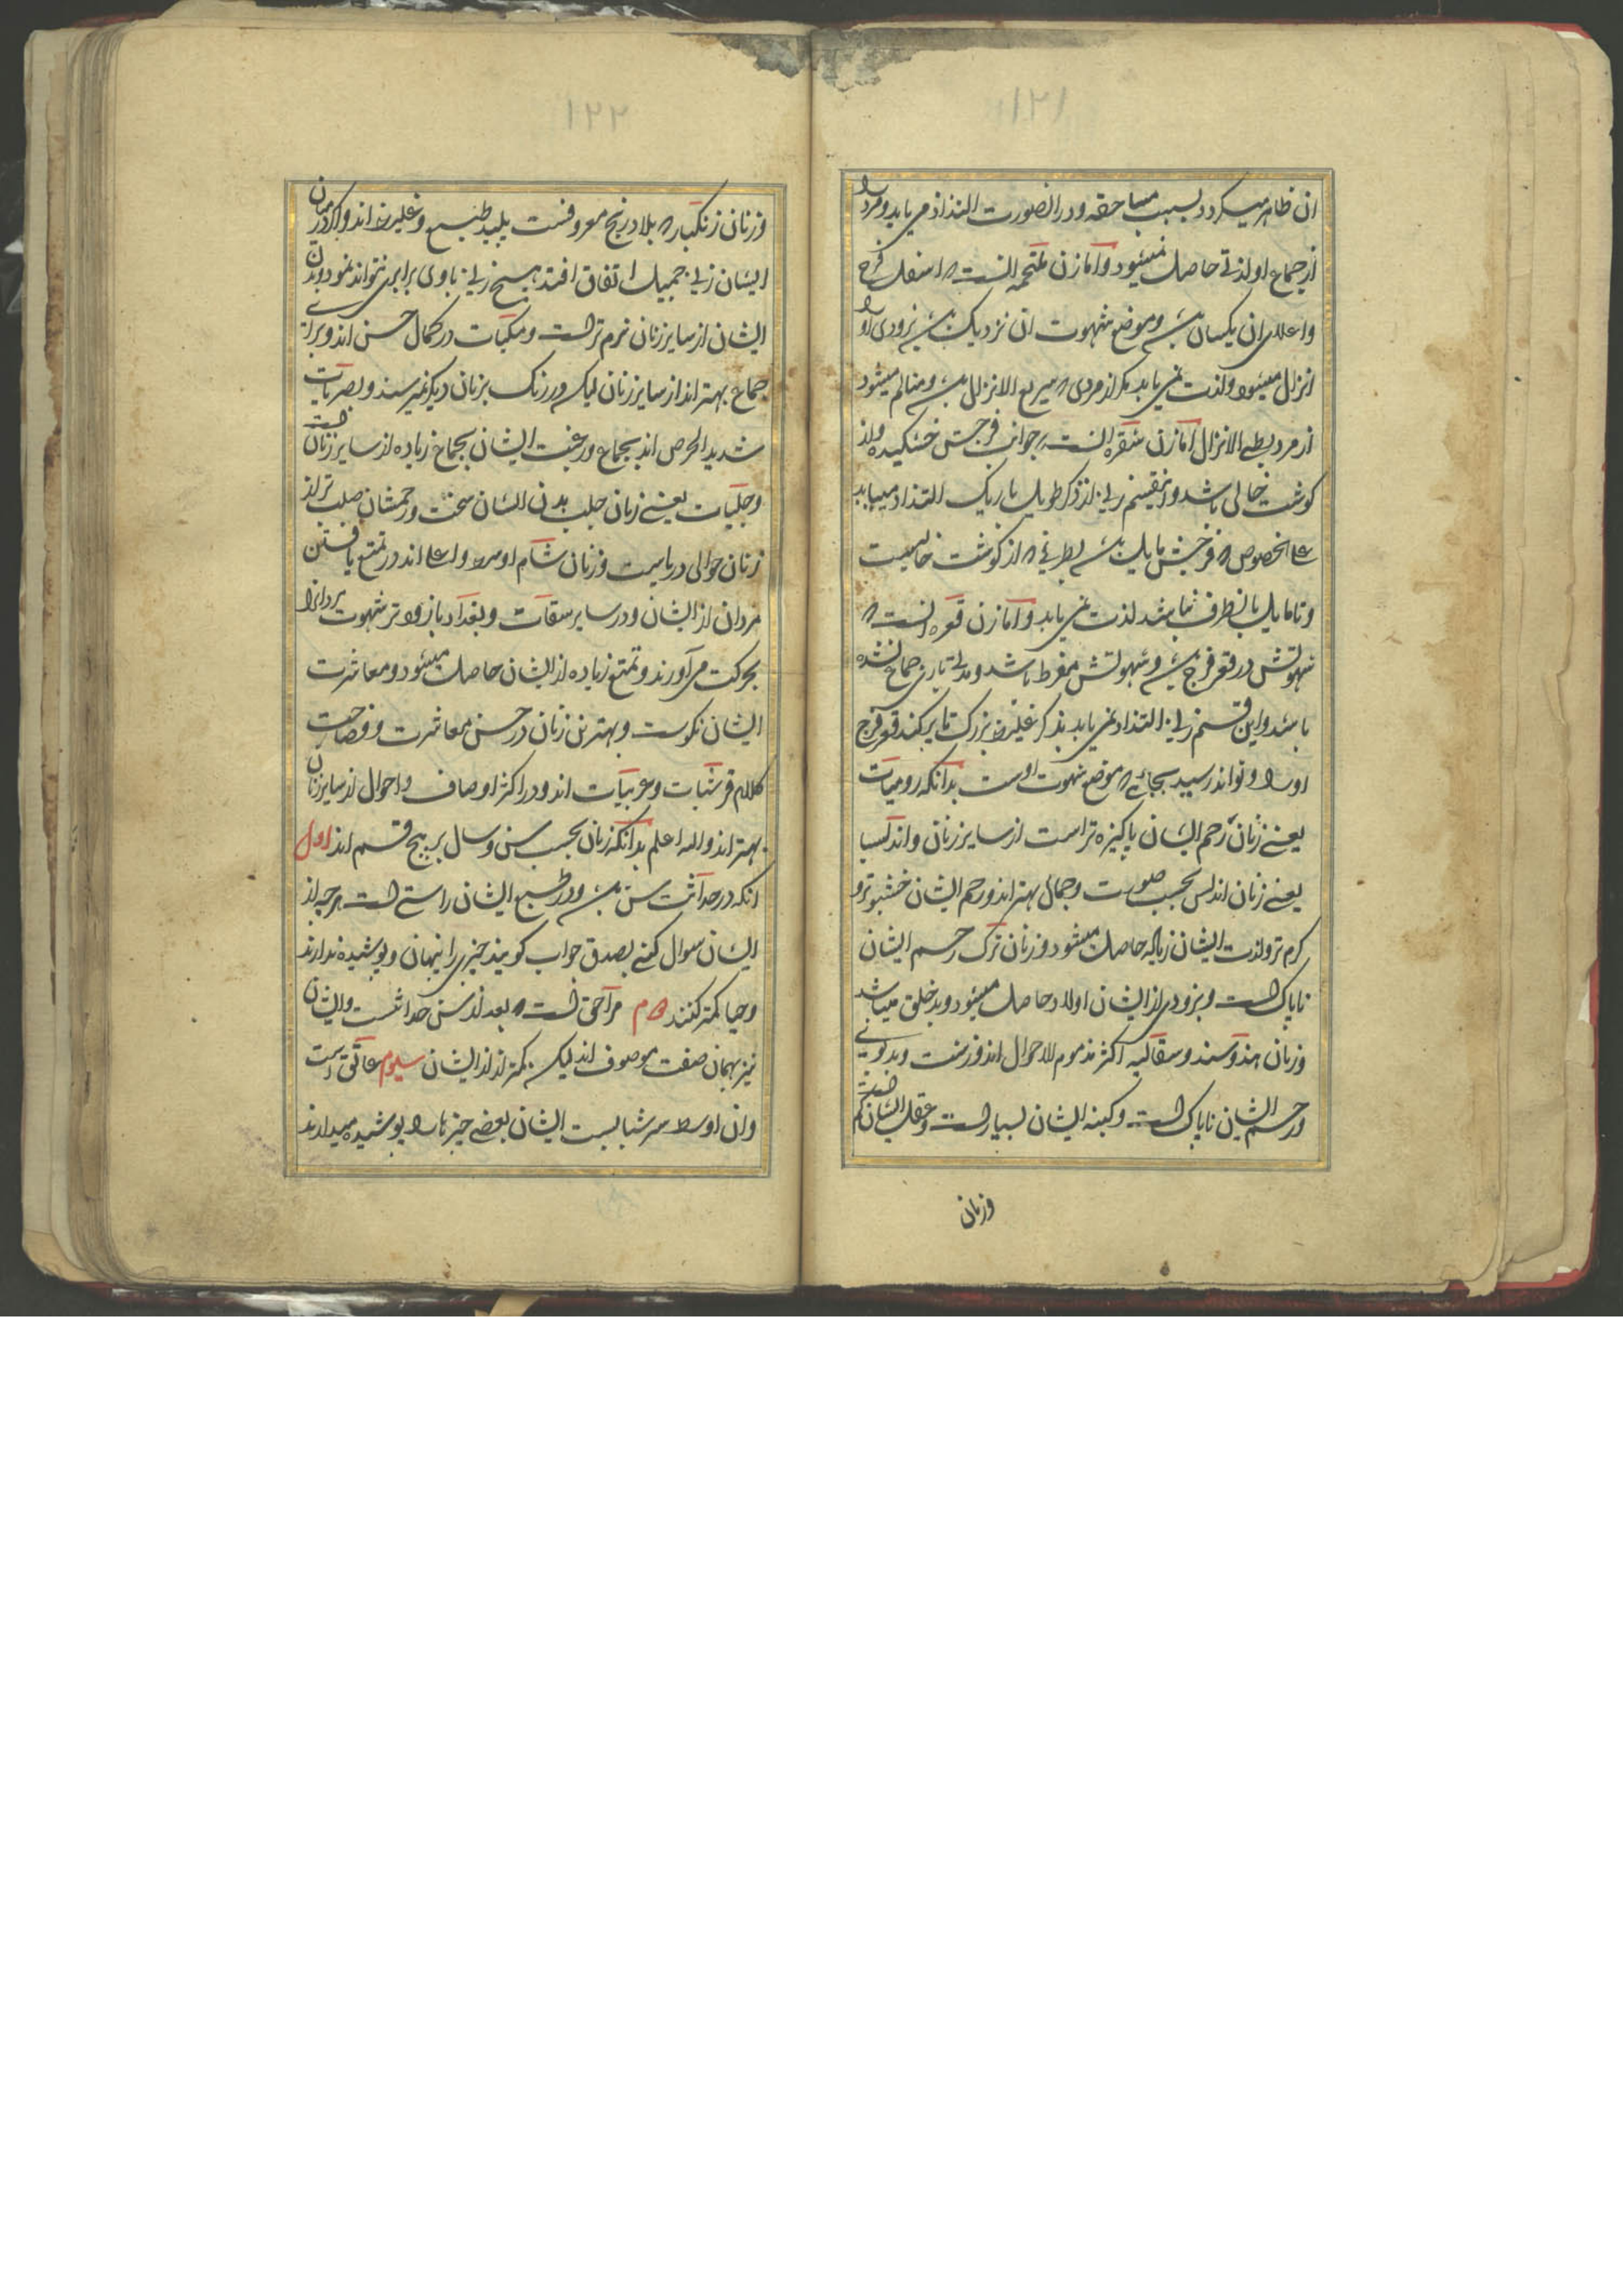 ۱۲۱
ان ظاهر میکردد بسبب مساحقه ودر انصورت التذاذ می یابد ومرد را
از جماع او لذتی حاصل نمیشود واما زن ملتحمه انست که اسفل فرج
واعلای ان یکسان باشد وموضع شهوت ان نزدیک باشد بزودی او را
انزال میشود ولذت نمی یابد مکر از مردی که سریع الانزال باشد ومتالم میشود
از مرد بطی الانزال اما زن شفره انست که جوانب فرجش خشکیده واز
کوشت خالی باشد واینقسم زن از ذکر طویل باریک التذاذ مییابد
علی الخصوص که فرجش مایل باشد بطرفی که از کوشت خالیست
وتا مایل بانطرف نباشد لذت نمی یابد واما زن قعره انست که
شهوتش در قعر فرج باشد وشهوتش مفرط باشد ومدتی باوی جماع نشده
باشد واین قسم زن التذاذ نمی یابد بذکر غلیظ بزرک تا پر کند قعر فرج
او را وتواند رسید بجائی که موضع شهوت اوست بدانکه رومیات
یعنی زنان رحم ایشان پاکیزه تر است از سایر زنان واندلسیا
یعنی زنان اندلس بحسب صورت وجمال بهتر اند ورحم ایشان خشبوتر و
کرم تر ولذت ایشان زیاده حاصل میشود وزنان ترک رحم ایشان
ناپاک است وبزودی از ایشان اولاد حاصل میشود وبد خلق میباشد
وزنان هند وسند وسقالبه اکثر مذموم الاحوال اند وزشت وبد بوی
ورحم ایشان ناپاک است وکینه ایشان بسیار است وعقل ایشان کم
وزنان
۱۲۲
وزنان زنکبار که بلاد زنج معروفست پلید طبع وغلیظ اند واکر در میان
ایشان زنی جمیل اتفاق افتد هیچ زنی باوی برابری نتواند نمود وبدن
ایشان از سایر زنان نرم تر است ومکیات در کمال حسن اند وبرای
جماع بهتر اند از سایر زنان لیکن در رنک بزنان دیکر نمیرسند وبصریات
شدید الحرص اند بجماع ورغبت ایشان بجماع زیاده از سایر زنان است
وحلبیات یعنی زنان حلب بدن ایشان سخت ورحمشان صلب تر از
زنان حوالی دریاست وزنان شام اوسط واعلی اند در تمتع یافتن
مردان از ایشان ودر سایر سقات وبغدادیان زودتر شهوت مردانرا
بحرکت می آورند وتمتع زیاده از ایشان حاصل میشود ومعاشرت
ایشان نکوست وبهترین زنان در حسن معاشرت وفصاحت
کلام قرشیات وعربیات اند ودر اکثر اوصاف واحوال از سایر زنان
بهتر اند والله اعلم بدانکه زنان بحسب سن وسال بر پنج قسم اند اول
انکه در حداثت سن باشد ودر طبع ایشان راستی است هر چه از
ایشان سوال کنی بصدق جواب کویند چیزی را پنهان وپوشیده ندارند
وحیا کمتر کنند دوم مراحق است که بعد از سن حداثت است وایشان
نیز بهمان صفت موصوف اند لیکن کمتر اند از ایشان سیوم عاتق است
وان اوسط سر شبابست ایشان بعضی چیزها را پوشیده میدارند